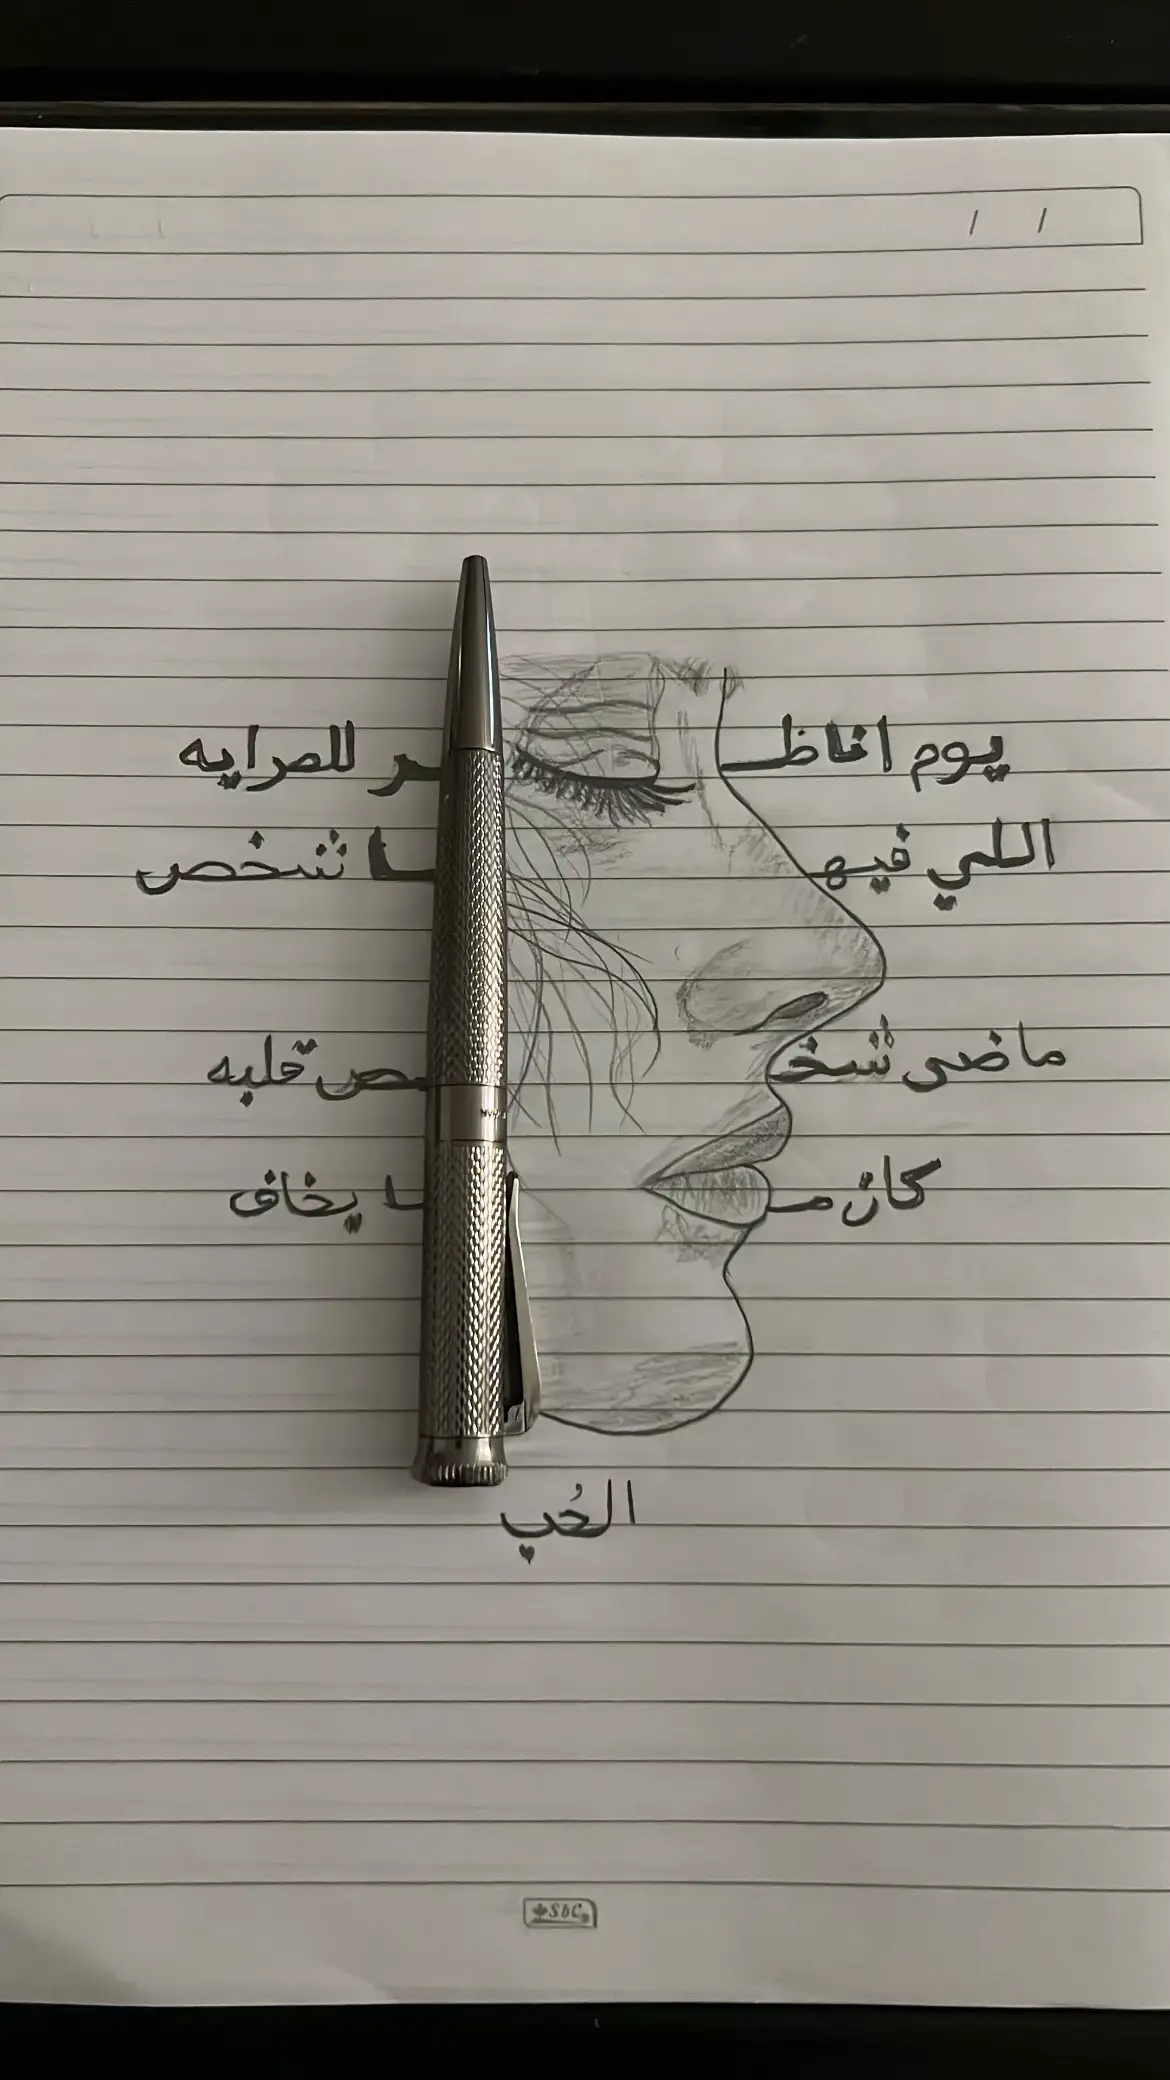 يوم اناظـر للمرايه
اللي فيهـا شخص
ماضي شخـص قلبه
كان مـا يخاف
الحُب
SbC